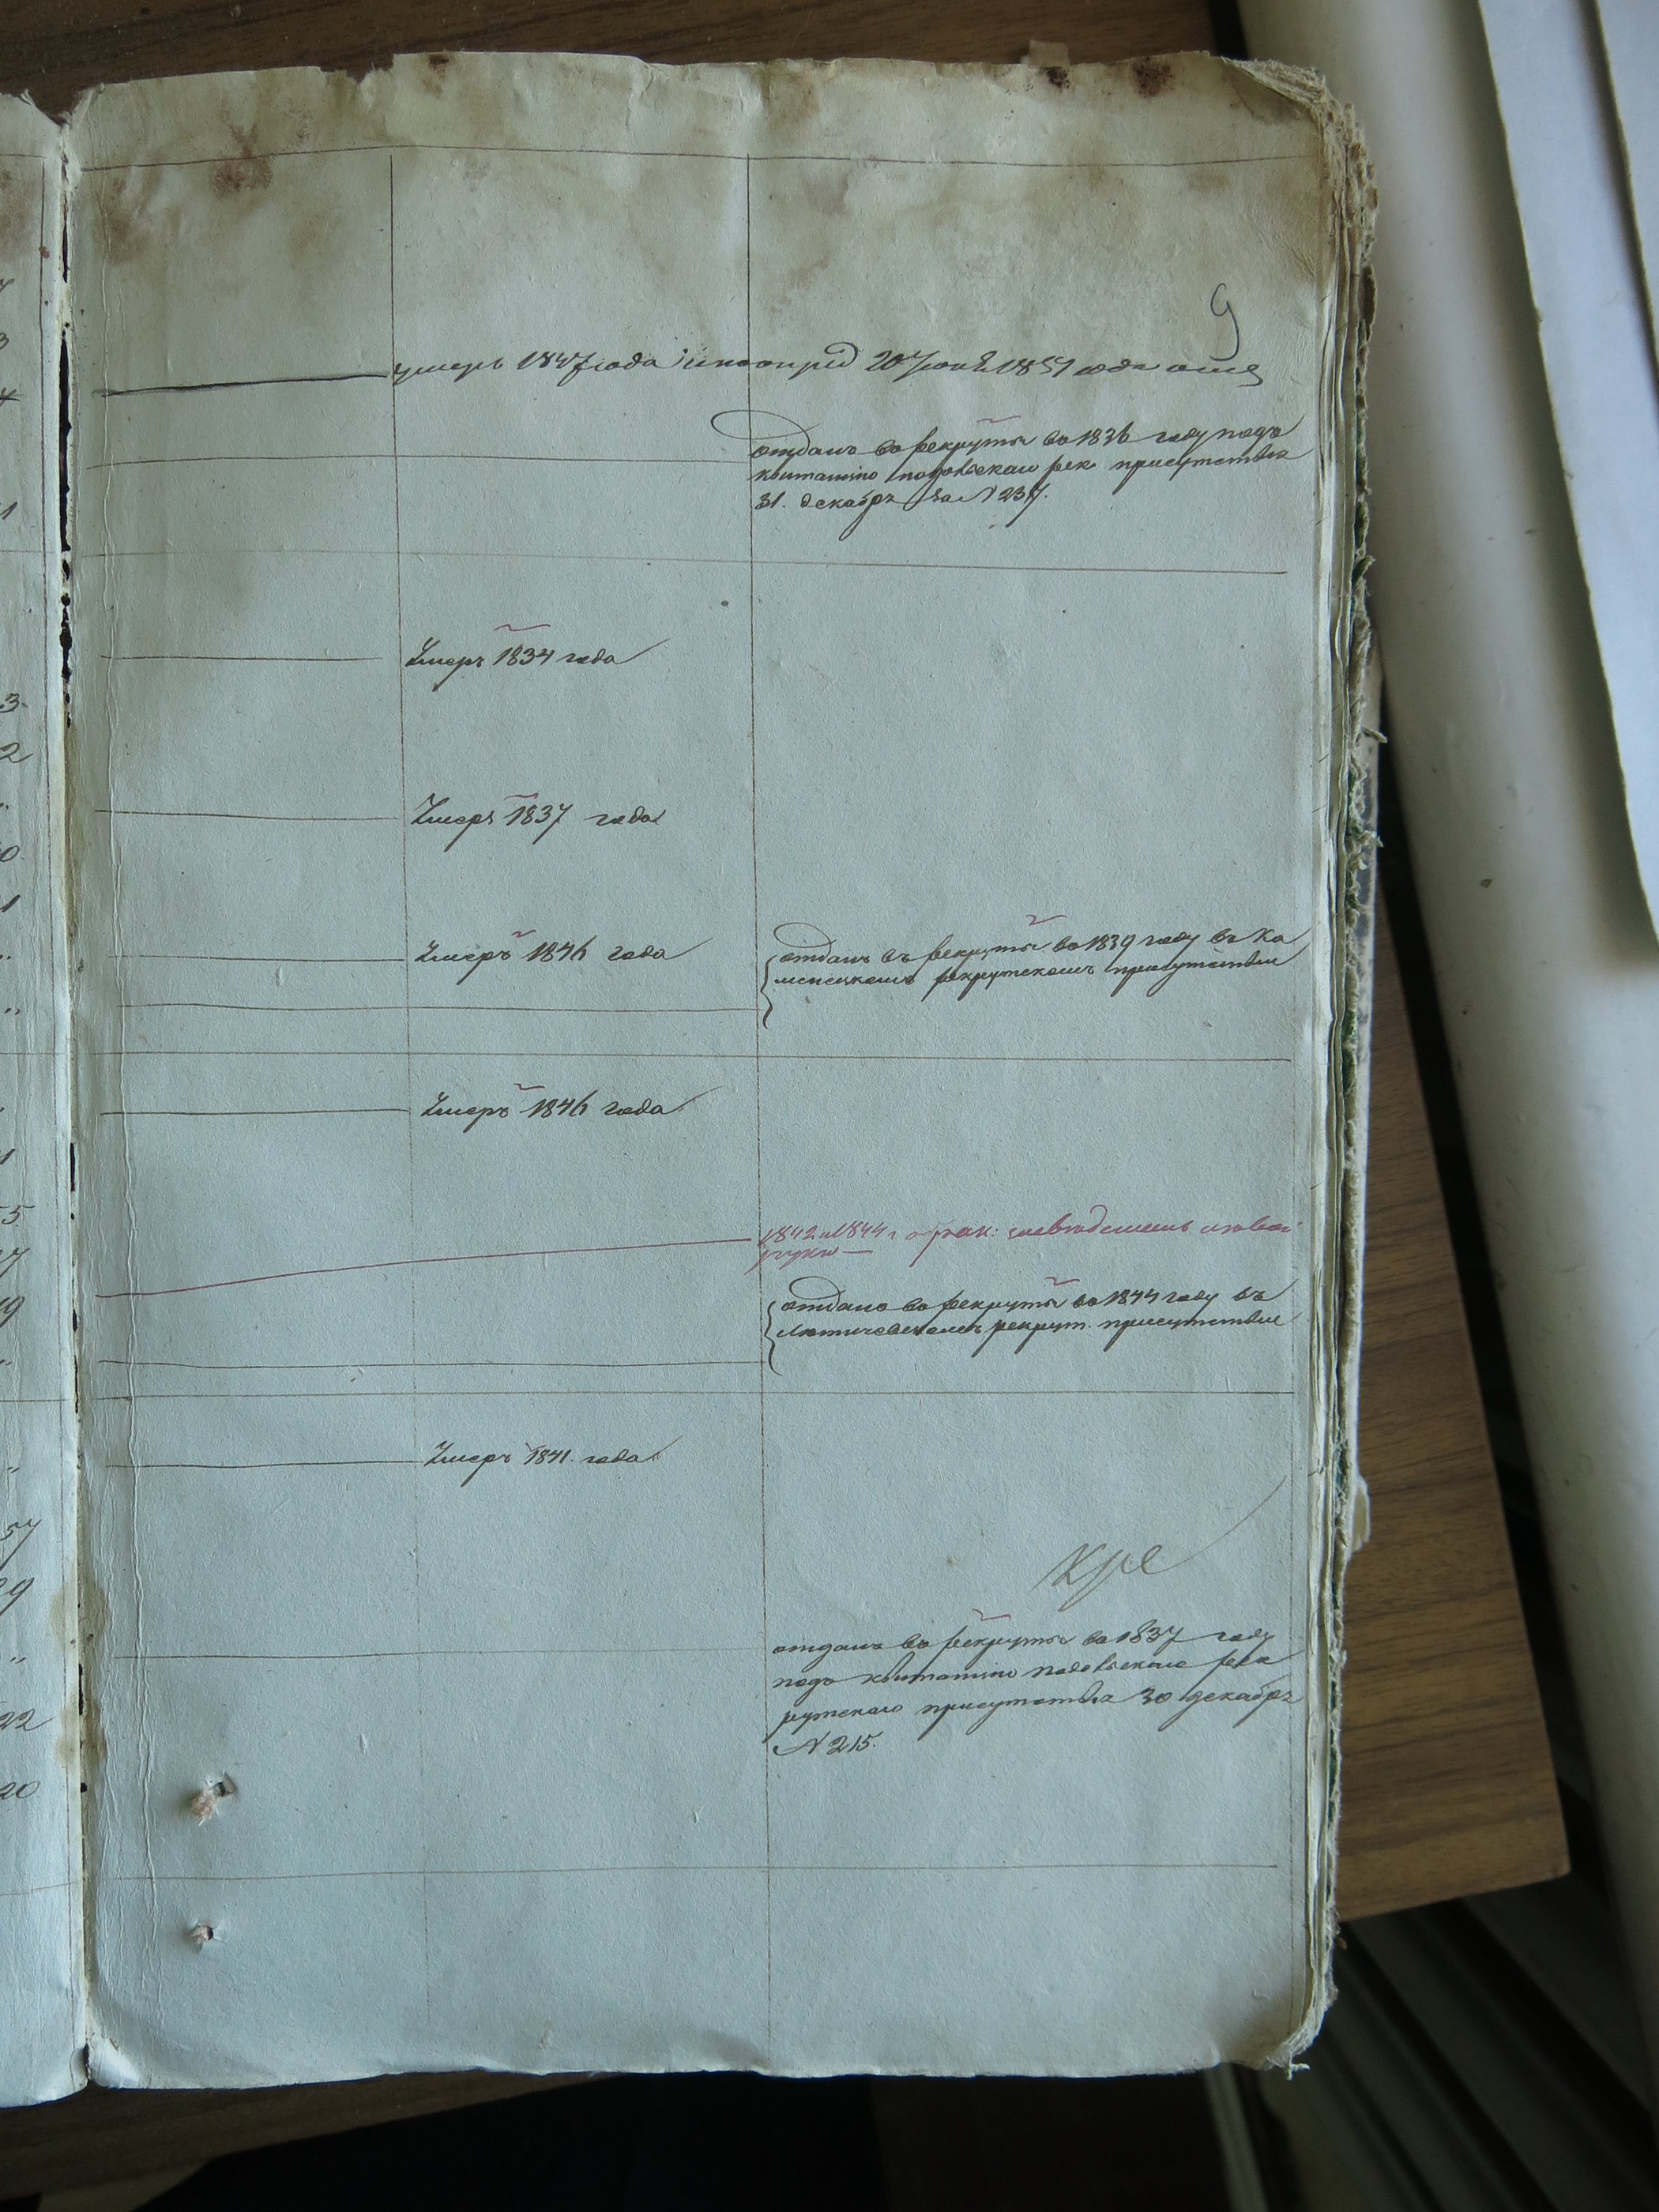 9
умеръ 1847 года 20 1851 года
отданъ въ рекруты въ 1836 году подъ
квитанцію подольскаго рек. присутствія
31. декабря за № 237.
Умеръ 1834 года
Умеръ 1837 года
Умеръ 1846 года
отданъ въ рекруты въ 1839 году въ Ка
менецкомъ рекрутскомъ присутствіи
Умеръ 1846 года
1842 и 1844 г.
отданъ въ рекруты въ 1844 году въ
Летичевскомъ рекрут. присутствіи
Умеръ 1841. года
отданъ въ рекруты въ 1837 году
подъ квитанцію подольскаго рек
рутскаго присутствія 30 декабря
№ 215.
3
2
0
1
1
5
57
22
20